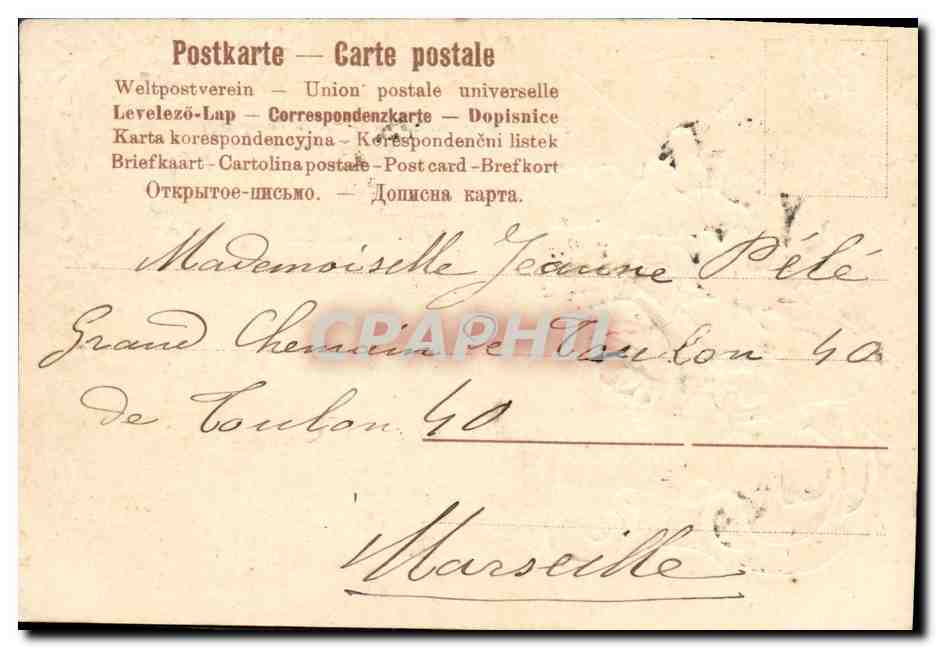 Postkarte — Carte postale
Weltpostverein — Union postale universelle
Levelező-Lap — Correspondenzkarte — Dopisnice
Karta korespondencyjna - Korespondenční listek
Briefkaart - Cartolina postale - Post card - Brefkort
Открытое-письмо. — Дописна карта.
Mademoiselle Jeanne Pélé
Grand Chemain de Toulon 40
de Toulon 40
Marseille
CPAPHIL